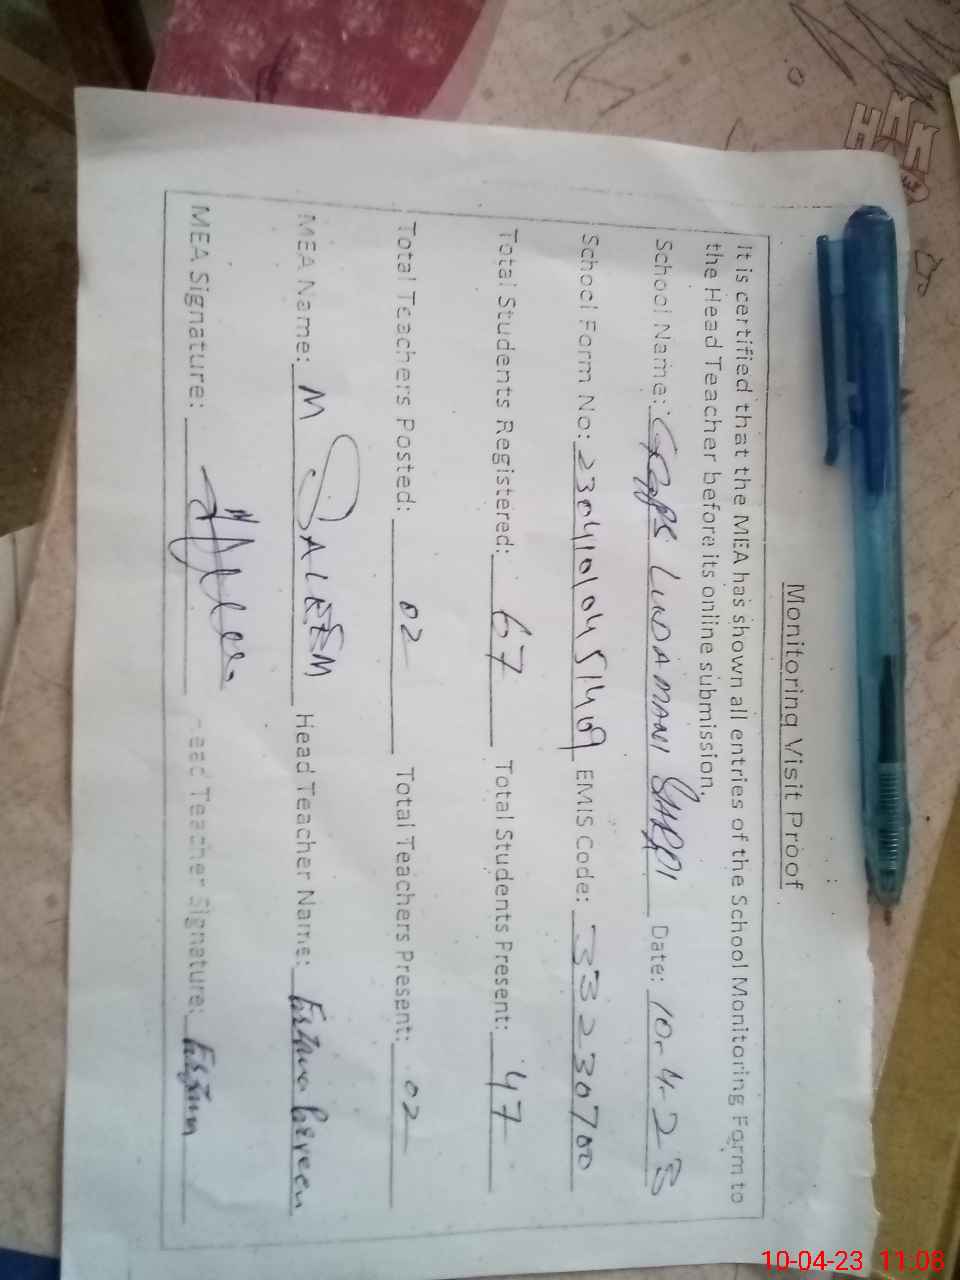 Monitoring Visit Proof
It is certified that the MEA has shown all entries of the School Monitoring Form to
the Head Teacher before its online submission.
School Name: GGPS LUDAMANI SHARQI Date: 10-4-23
School Form No: EMIS Code: 33230700
Total Students Registered: 67 Total Students Present: 47
Total Teachers Posted: 02 Total Teachers Present: 02
MEA Name: M SALEEM Head Teacher Name:
MEA Signature: Head Teacher Signature:
10-04-23 11:08